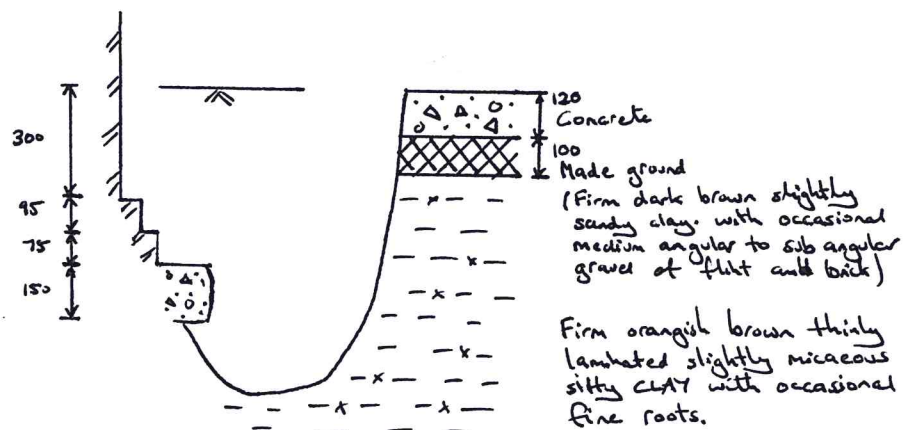 300
95
75
150
120
Concrete
100
Made ground
(Firm dark brown slightly
sandy clay. with occasional
medium angular to sub angular
gravel of flint and brick)
Firm orangish brown thinly
laminated slightly micaeous
silty CLAY with occasional
fine roots.